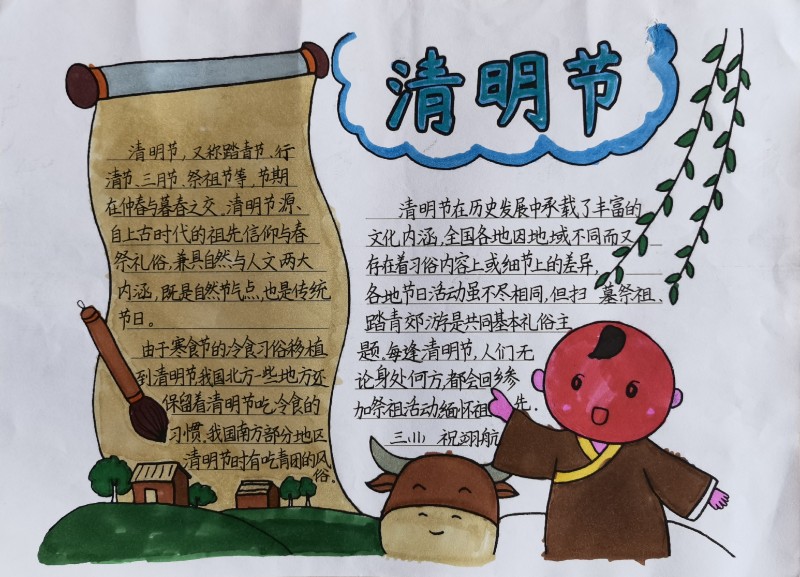 清明节
清明节，又称踏青节、行
清节、三月节、祭祖节等，节期
在仲春与暮春之交。清明节源
自上古时代的祖先信仰与春
祭礼俗，兼具自然与人文两大
内涵，既是自然节气点，也是传统
节日。
由于寒食节的冷食习俗移植
到清明节我国北方一些地方还
保留着清明节吃冷食的
习惯，我国南方部分地区
清明节时有吃青团的风
俗。
清明节在历史发展中承载了丰富的
文化内涵，全国各地因地域不同而又
存在着习俗内容上或细节上的差异，
各地节日活动虽不尽相同，但扫墓祭祖、
踏青郊游是共同基本礼俗主
题，每逢清明节，人们无
论身处何方，都会回乡参
加祭祖活动缅怀祖先.
三川 祝翊航